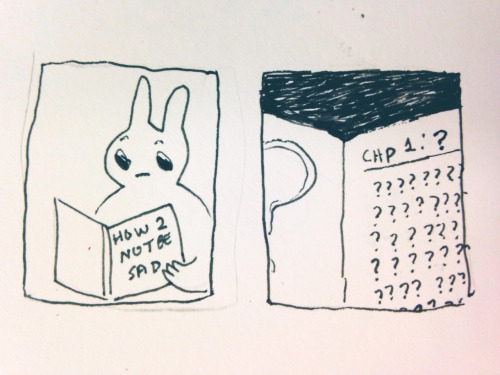 HOW 2
NOT BE
SAD
CHP 1: ?
???????
???? ???
? ? ? ???
? ? ????
???? ???